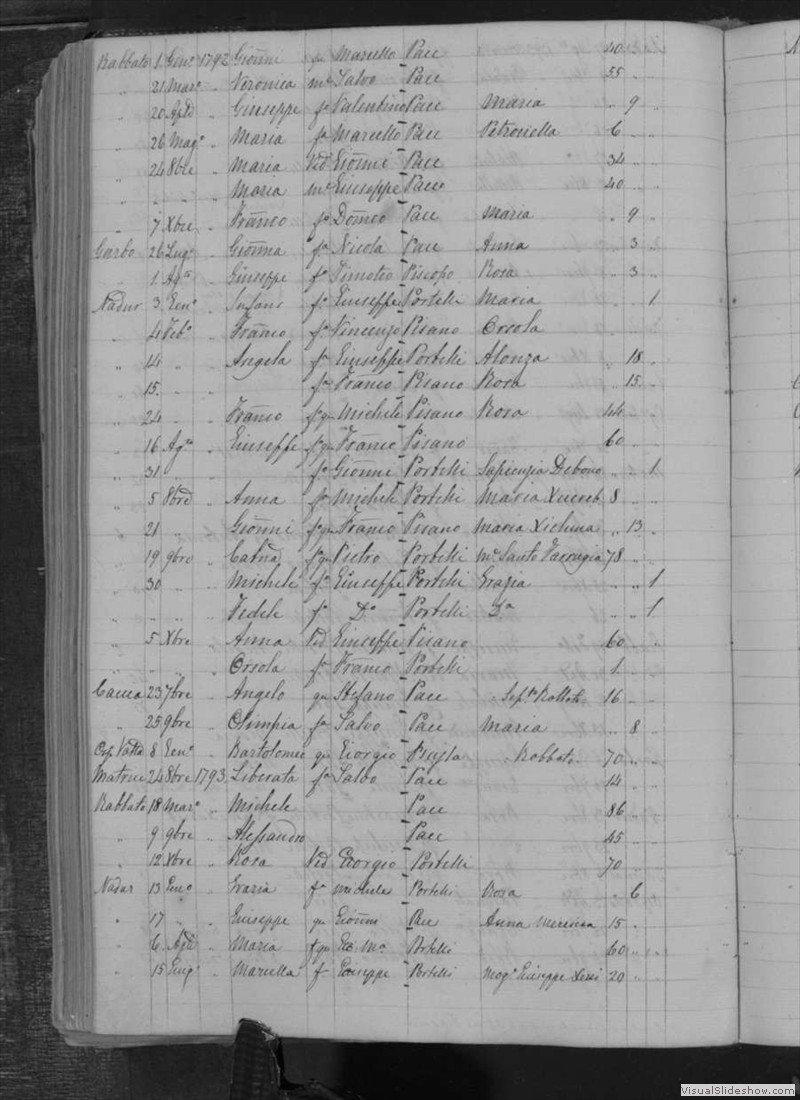 Rabbato 1 Genº 1792 Gioñni qu Marcello Pace 40
" 21 Marº " Veronica mª Salvo Pace 55
" 20 Aple " Giuseppe fº Valentino Pace Maria " 9 "
" 26 Magº " Maria fª Marcello Pace Petronella 6
" 24 8bre " Maria Ved Gionni Pace 34
" " " " Maria mª Giuseppe Pace 40
" 7 Xbre " Franco fº Domco Pace Maria " 9
Garbo 26 Lugº " Gionna fª Nicola Pace Anna " 3 "
" 1 Agto " Giuseppe fº Timoteo Piscopo Rosa " 3 "
Nadur 3 Genº " Infans fº Giuseppe Portelli Maria " " 1
" 4 Febº " Franco fº Vincenzo Pisano Orsola
" 14 " Angela fª Giuseppe Portelli Alonza " 18
" 15 " fº Franco Pisano Rosa " 15 "
" 24 " Franco fº qu Michele Pisano Rosa 44
" 16 Agto " Giuseppe fº qu Franco Pisano 60
" 31 " " fº Gionni Portelli Sapienzia Debono " " 1
" 5 8bre " Anna fª Michele Portelli Maria Xuereb 8 " "
" 21 " " Gionni fº qu Franco Pisano Maria Xicluna " 13 "
" 19 9bre " Catna fª qu Pietro Portelli mª Santo Farrugia 78 "
" 30 " Michele fº Giuseppe Portelli Grazia " " 1
" " " " Fedele fº Dº Portelli Dª " " 1
" 5 Xbre " Anna Ved Giuseppe Pisano 60
" " " " Orsola fª Franco Portelli 1
Caccia 23 7bre " Angelo qu Stefano Pace 16 "
" 25 9bre " Olimpia fª Salvo Pace Maria " 8
8 Genº " Bartolomeo qu Giorgio Rabbato 70 " "
Matrice 24 8bre 1793 Liberata fª Salvo Pace 14
Rabbato 18 Marº " Michele Pace 86
" 9 9bre " Alessandro Pace 45
" 12 Xbre " Rosa Ved Giorgio Portelli 70
Nadur 13 Genº " Grazia fª Michele Portelli Rosa " 6
" 17 " " Giuseppe qu Gionni Pace Anna 15 "
" 6 Aple " Maria fª qu Portelli 60 "
" 15 " Marcella fª Giuseppe Portelli Mogº Giuseppe 20 "
VisualSlideshow.com